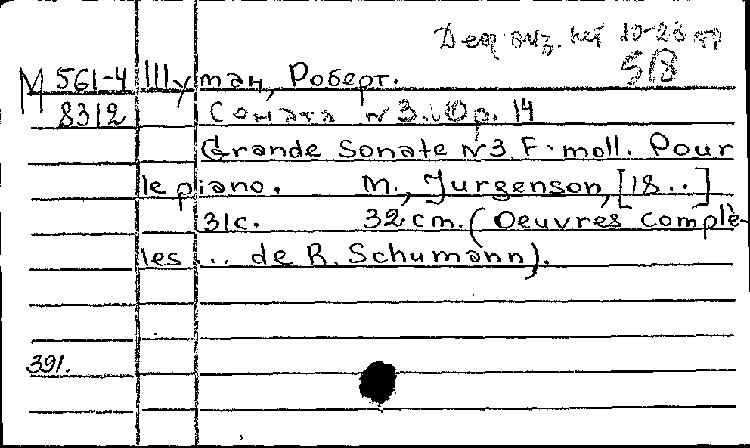 10-28
518
М 561-4 Шуман, Роберт.
8312 Соната №3. Op. 14
Grande Sonate №3 F-moll. Pour
le piano. M., Jurgenson, [18..]
31с. 32 cm. (Oeuvres complè-
les ... de R. Schumann).
391.